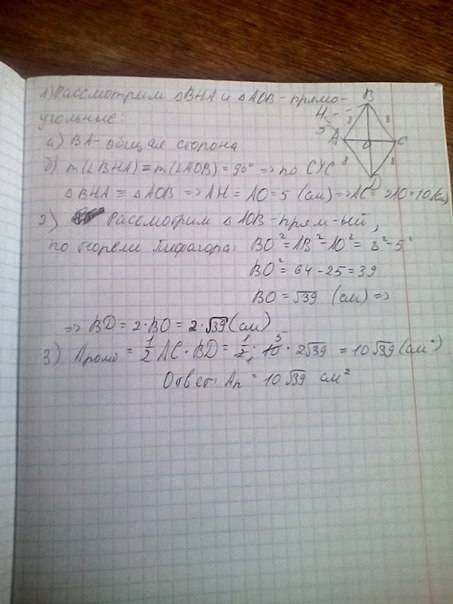 1) Рассмотрим △BHA и △AOB - прямо-
угольные:
B
H
5
8
8
а) BA - общая сторона
A
O
C
б) m(∠BHA) = m(∠AOB) = 90° => по СУС
8
8
D
△BHA ≡ △AOB => AH = AO = 5 (см) => AC = 2AO = 10 (см)
2) Рассмотрим △AOB - прям-ый,
по теореме Пифагора: BO² = AB² - AO² = 8² - 5²
BO² = 64 - 25 = 39
BO = √39 (см) =>
=> BD = 2 · BO = 2 · √39 (см)
3) Aромб = 1/2 AC · BD = 1/2 · 10 · 2√39 = 10√39 (см²)
Ответ: Aр = 10√39 см²